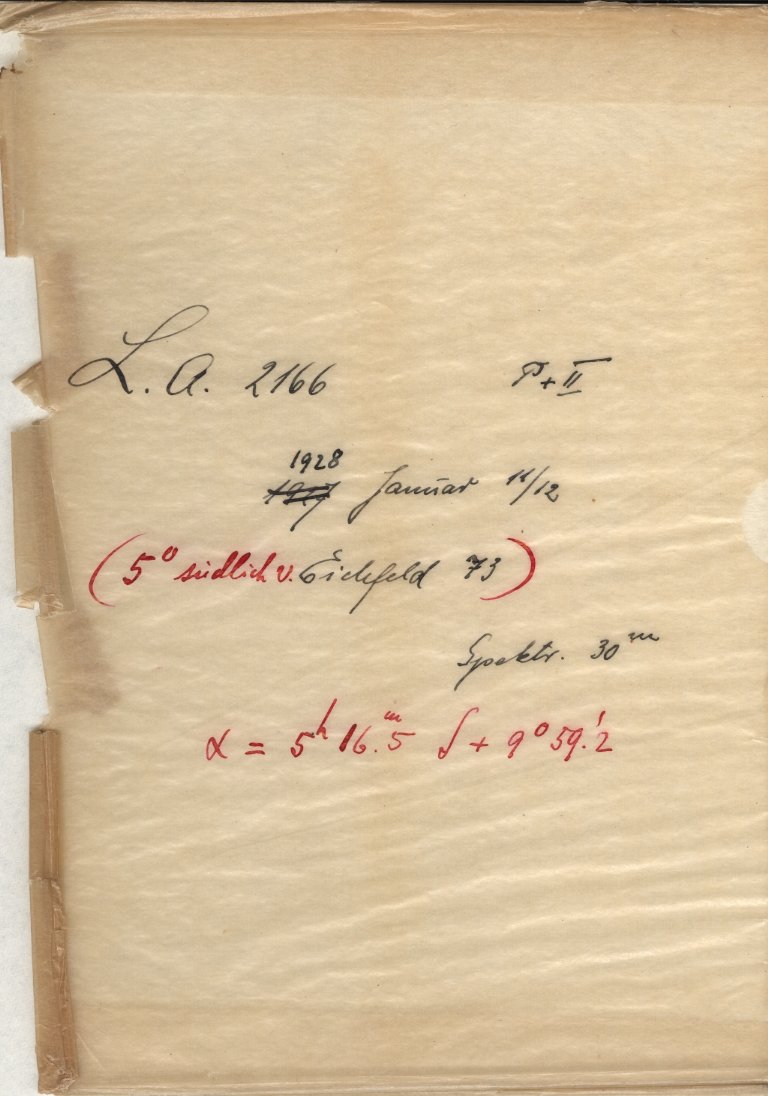 L. A. 2166 P + II
1928
1927 Januar 11/12
(5° südlich v. Eichfeld 73)
Spektr. 30ᵐ
α = 5ʰ 16.ᵐ5 δ + 9° 59.'2